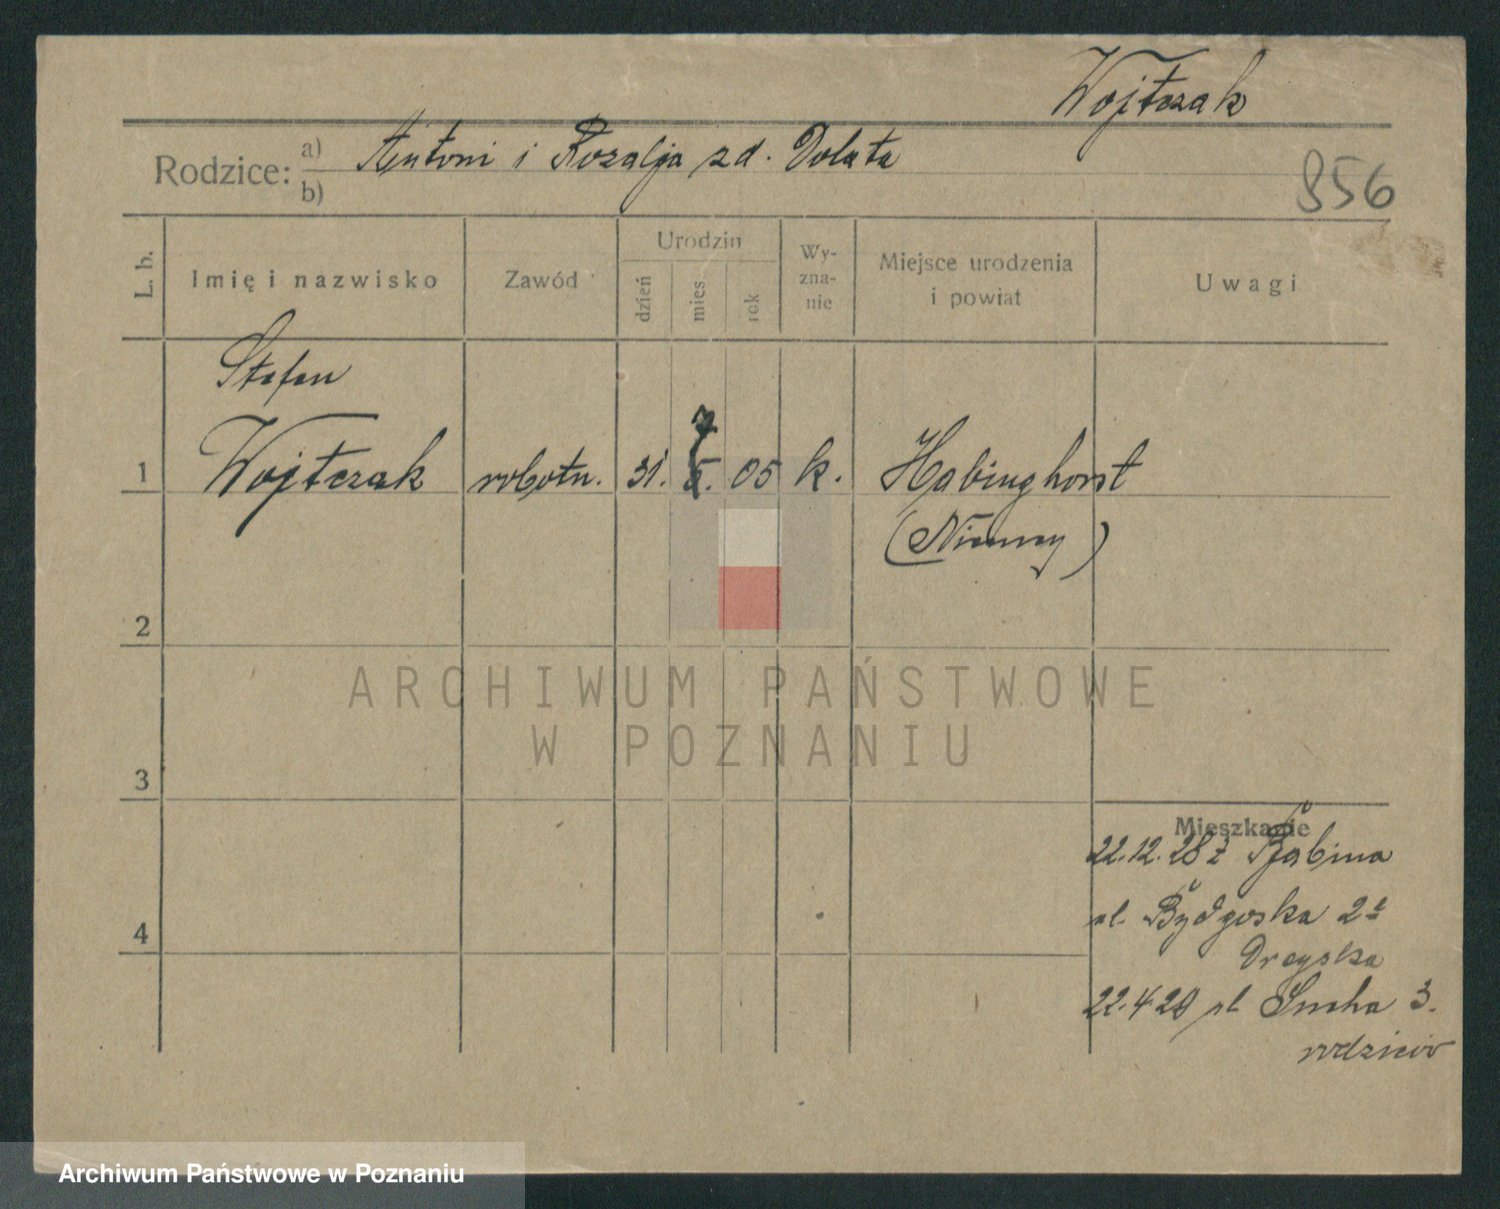 Wojtczak
Rodzice: a) Antoni i Rozalja z d. Dolata
b)
856
L. b. Imię i nazwisko Zawód Urodzin dzień mies rok Wy-zna-nie Miejsce urodzenia i powiat Uwagi
Stefan
1 Wojtczak robotn. 31. 7 05 k. Habinghorst
(Niemcy)
2
ARCHIWUM PAŃSTWOWE
W POZNANIU
3
Mieszkanie
22.12.28 z Babina
ul. Bydgoska 2a
4
22.4.29 ul Sucha 3.
rodziców
Archiwum Państwowe w Poznaniu